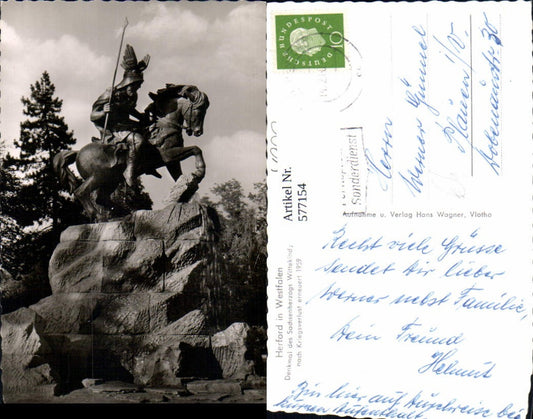 Herford in Westfalen
Denkmal des Sachsenherzogs Wittekind,
nach Kriegsverlust erneuert 1959
DEUTSCHE BUNDESPOST
10
Artikel Nr.
577154
Sonderdienst
Herrn
Werner
Plauen i/V.
Aufnahme u. Verlag Hans Wagner, Vlotho
Recht viele Grüsse
sendet dir lieber
Werner nebst Familie,
Dein Freund
Helmut
Bin hier auf
kurzen Aufenthalt